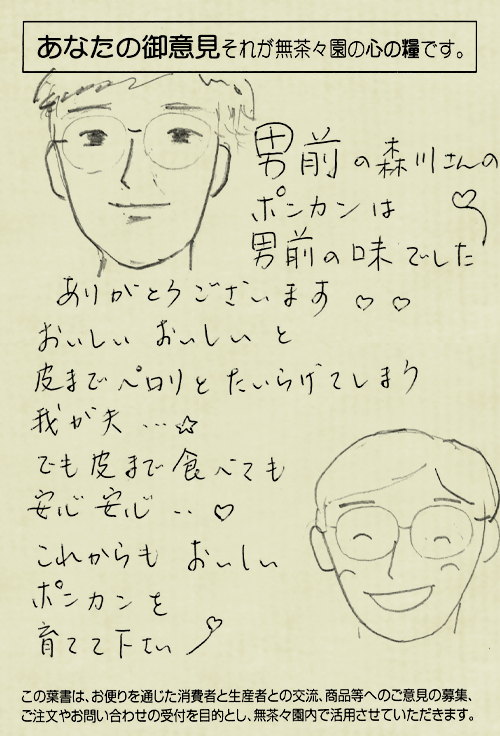 あなたの御意見それが無茶々園の心の糧です。
男前の森川さんの
ポンカンは
男前の味でした♡
ありがとうございます♡♡
おいしいおいしいと
皮までペロリとたいらげてしまう
我が夫…☆
でも皮まで食べても
安心安心‥♡
これからもおいしい
ポンカンを
育てて下さい♡
この葉書は、お便りを通じた消費者と生産者との交流、商品等へのご意見の募集、
ご注文やお問い合わせの受付を目的とし、無茶々園内で活用させていただきます。